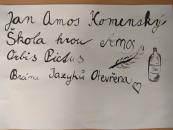 Jan Amos Komenský
Škola hrou
Amos
Orbis Pictus
Brána Jazyků Otevřena